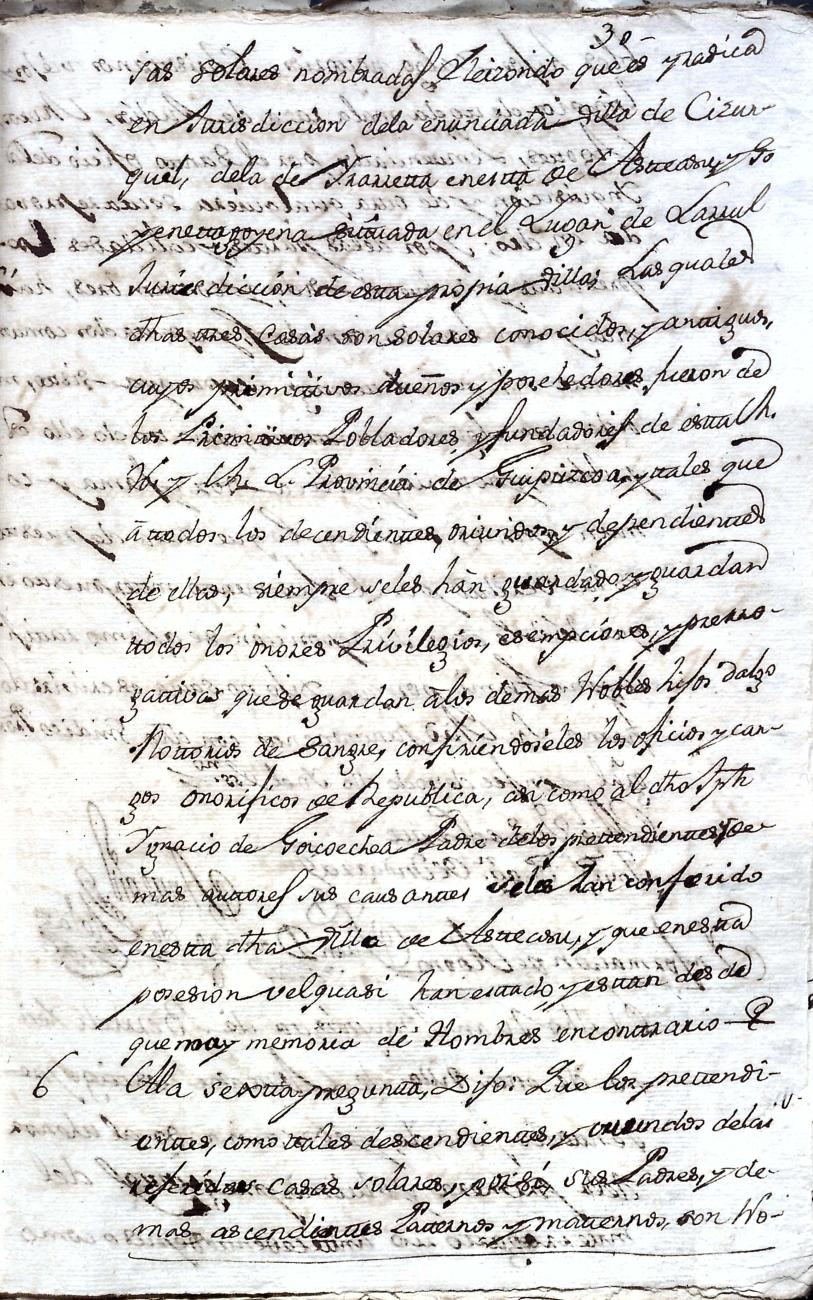 30
sas solares nombradas Eleizondo que es y radica
en Jurisdiccion dela enunciada Villa de Cizur-
quel, dela de Yrarretta enestta de Astteasu, y Go
yenettagoyena sittuada en el Lugar de Larraul
Jurisdiccion de estta propia Villa; Las quales
dhas ttres Casas son solares conocidos, y anttiguos,
cuyos primittivos dueños y posehedores fueron de
los Primittivos Pobladores, y fundadores de estta M.
N. y M. L. Provincia de Guipuzcoa, y ttales que
à ttodos los decendienttes, oriundos, y dependienttes
de ellas, siempre seles hàn guardado, y guardan
ttodos los onores Privilegios, esempciones, y prerro-
gattivas que se guardan à los demas Nobles hijos dalgo
Nottorios de Sangre, confiriendoseles los oficios y car-
gos onorificos de Republica, asi como al dho Jph
Ygnacio de Goicoechea Padre delos prettendienttes y de
mas auttores sus causanttes seles han conferido
enestta dha Villa de Astteasu, y que enestta
posesion velquasi han esttado, y esttan desde
que no ay memoria de Hombres en conttrario
6 A la sextta preguntta, Dijo: Que los prettendi-
enttes, como ttales descendienttes, y oriundos delas
referidas Casas solares, y por si, sus Padres, y de-
mas ascendienttes Patternos y matternos, son No-